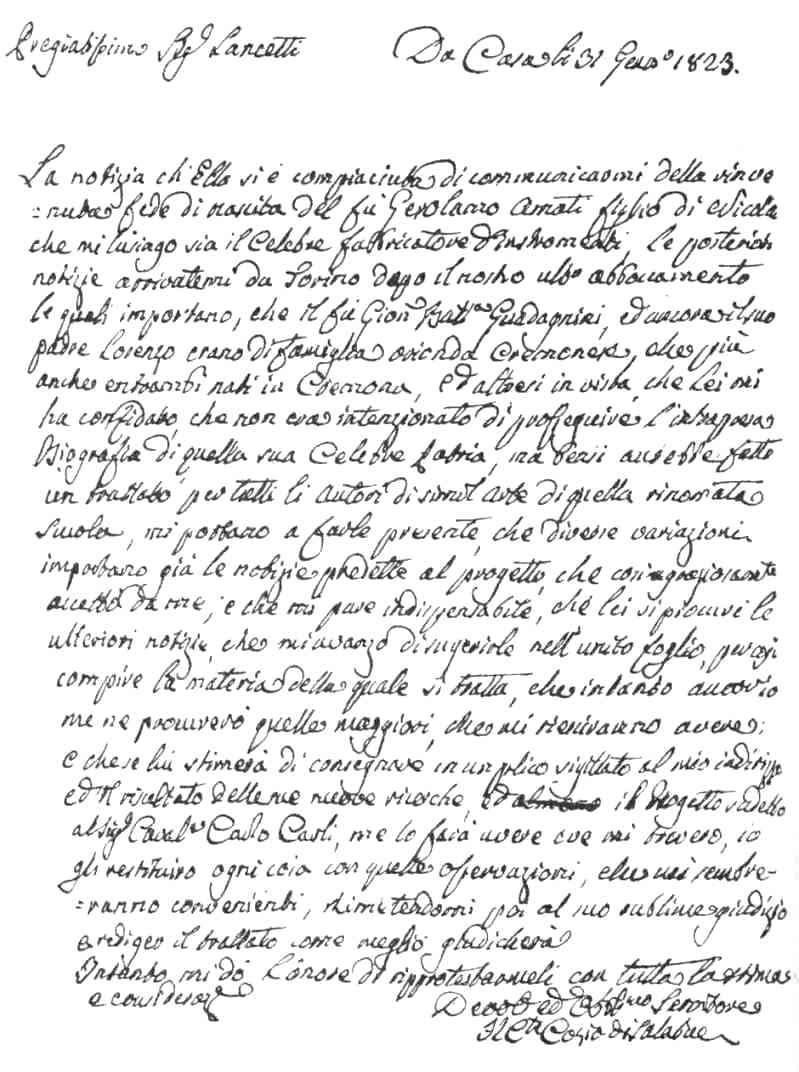 Pregiatissimo Sigr Lancetti
Da Casa li 31 Genn° 1823.
La notizia ch'Ella si è compiaciuta di communicarmi della rinve
=nuta fede di nascita del fù Gerolamo Amati figlio di Nicola
che mi lusingo sia il celebre fabbricatore d'Instromenti, le posteriori
notizie arrivatemi da Torino dopo il nostro ult° abboccamento
le quali importano, che il fù Gion Batta Guadagnini, ed ancora il suo
padre Lorenzo erano di famiglia orionda Cremonese, che più
anche entrambi nati in Cremona, ed altresi in vista, che Lei mi
ha confidato, che non era intenzionato di proseguire l'intrapresa
Biografia di quella sua Celebre Patria, ma bensi avrebbe fatto
un trattato per tutti li autori di simil arte di quella rinomata
Scuola, mi portano a farle presente, che diverse variazioni
importano già le notizie predette al progetto, che con
accettò da me, e che mi pare indispensabile, che lei si procuri le
ulteriori notizie, che mi avanzo di sugerirle nell'unito foglio, per così
compire la materia della quale si tratta, che intanto ancor io
me ne procurerò quelle maggiori, che mi rieniranno avere;
e che se lui stimerà di consegnare in un plico sigillato al mio indirizzo
ed il risultato delle sue nuove ricerche, ed almeno il Progetto sudetto
al Sigr Caval.e Carlo Carli, me lo farà avere ove mi trovero, io
gli restituirò ogni cosa con quelle osservazioni, che mi sembre-
=ranno convenienti, rimettendomi poi al suo sublime giudizio
a rediger il trattato come meglio giudicherà
Intanto mi dò l'onore di ripprotestarmeli con tutta la stima
e consideraz.e
Devot.o ed Obbl.mo Servitore
Il Cte Cozio di Salabue